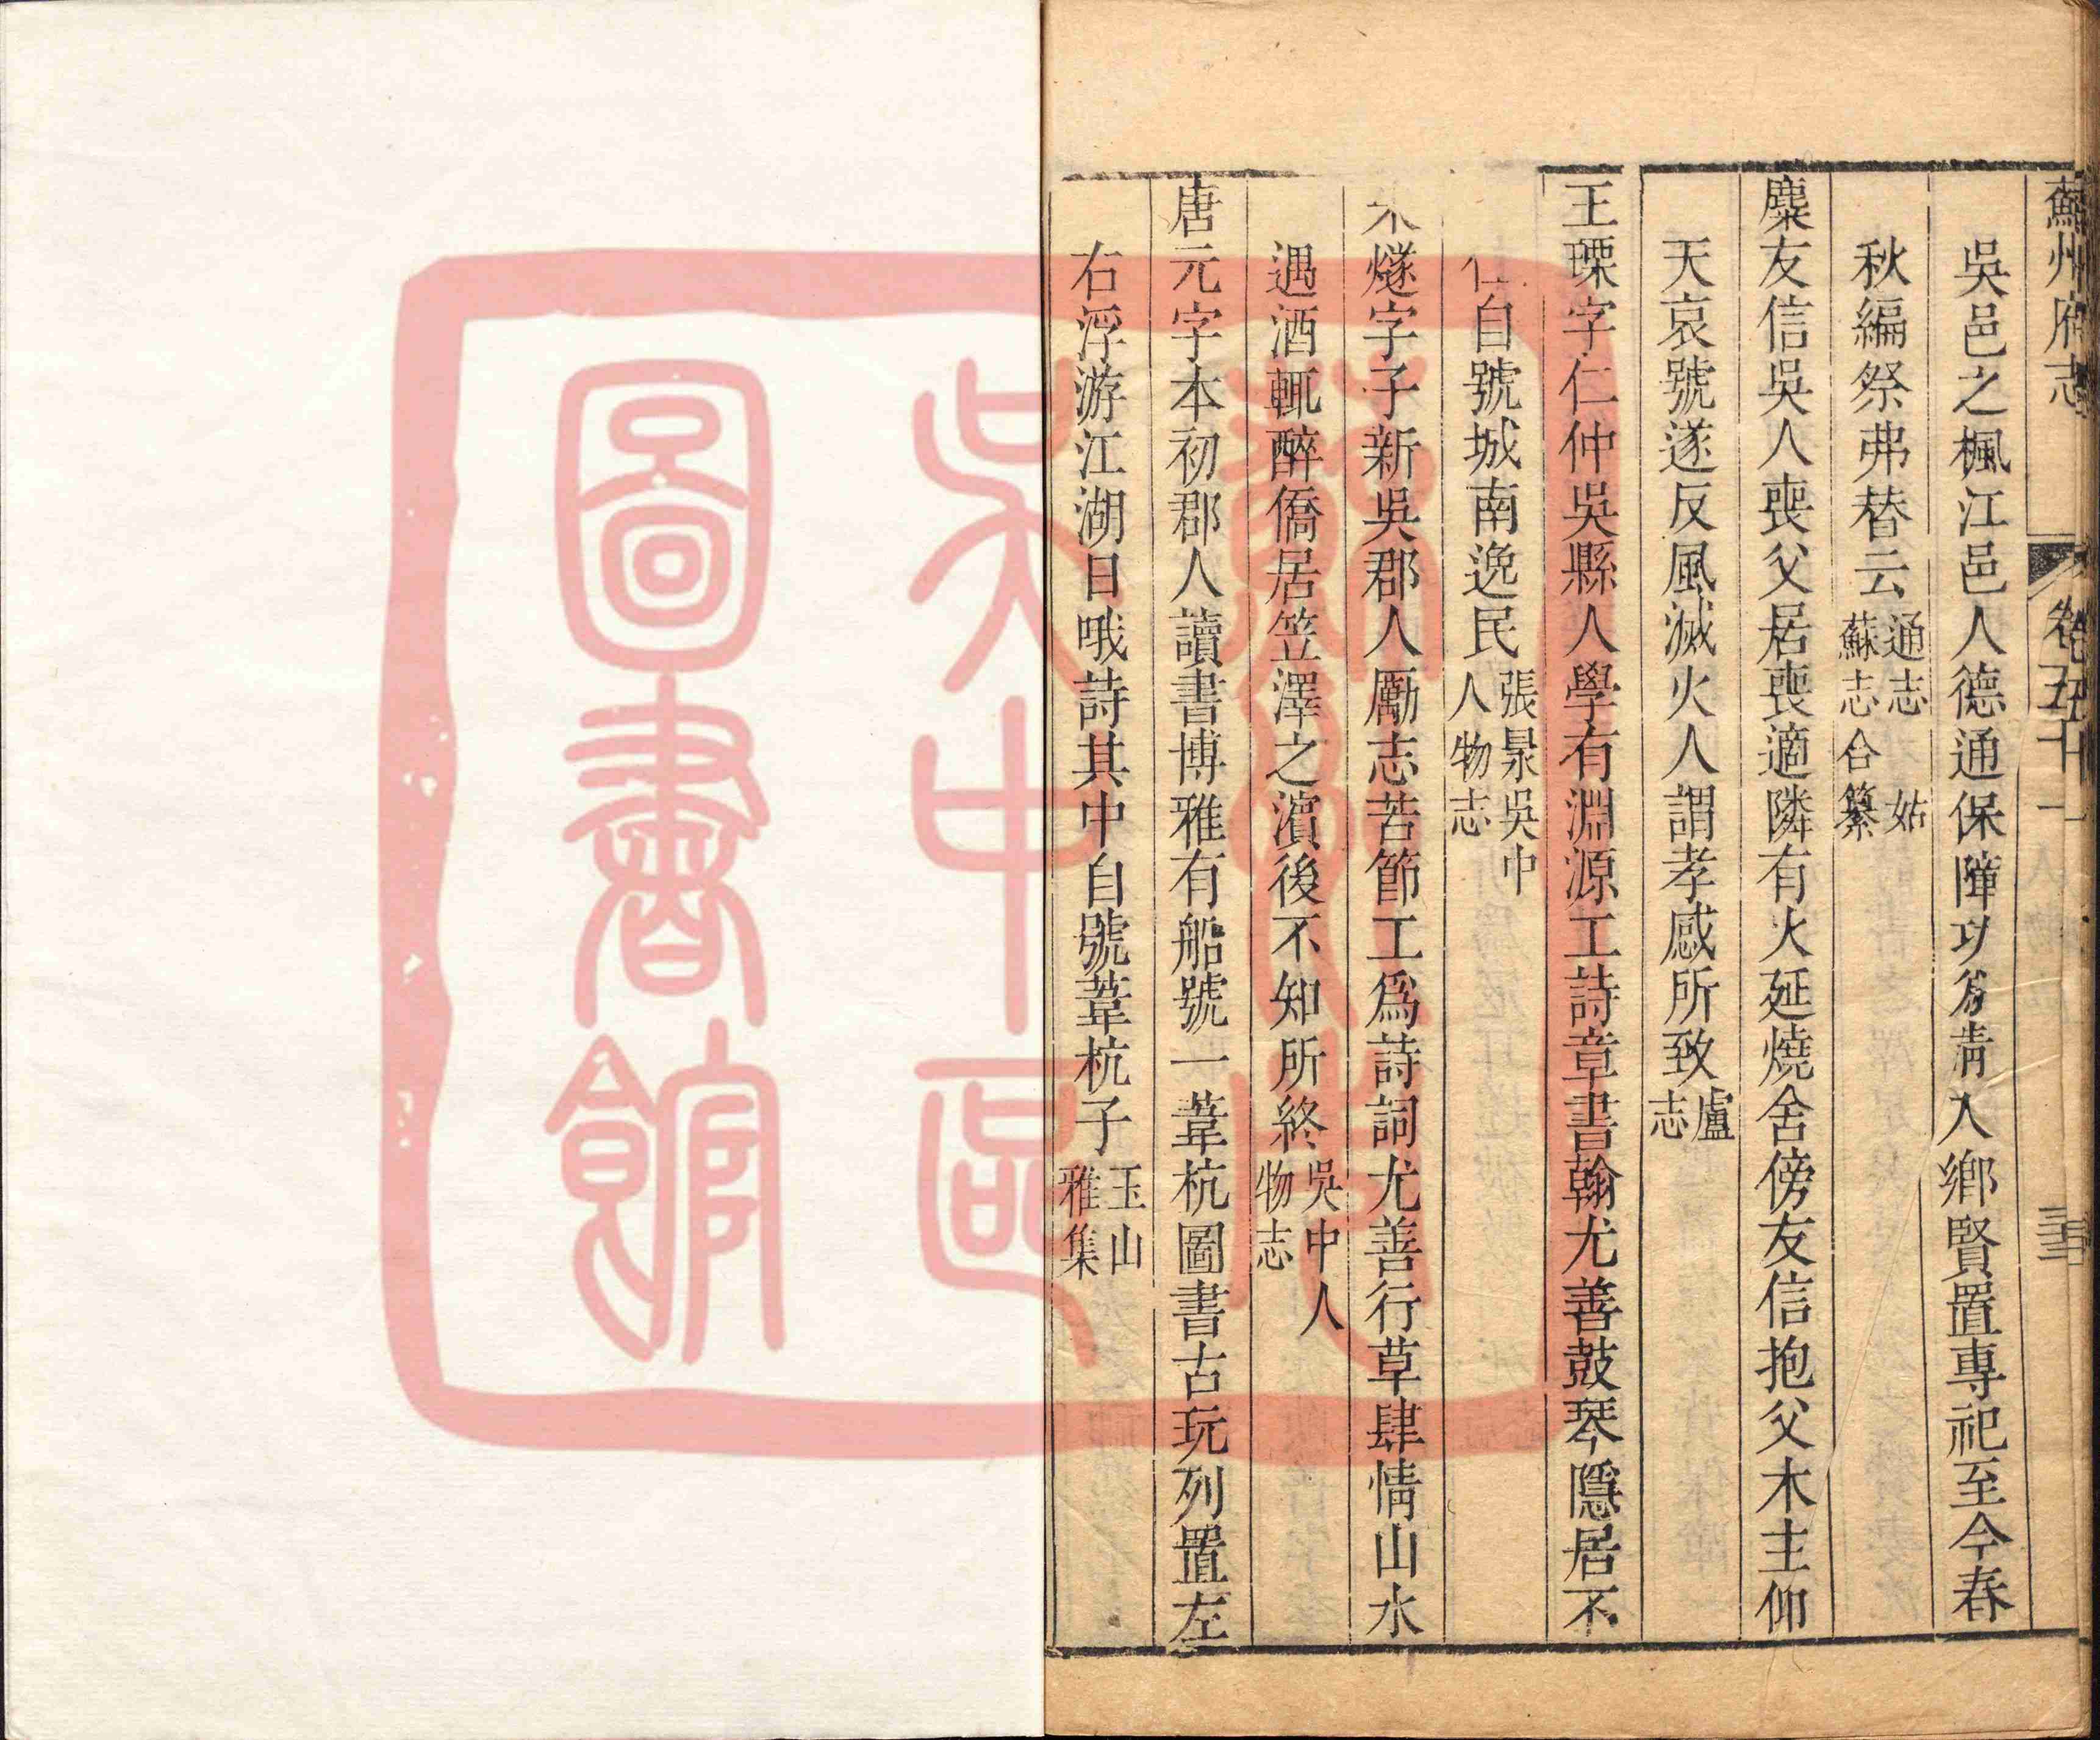 蘇州府志 卷五十一
吳邑之楓江邑人德通保障功為請入鄉賢置專祀至今春
秋編祭弗替云通志姑蘇志合纂
麋友信吳人喪父居喪適隣有火延燒舍傍友信抱父木主仰
天哀號遂反風滅火人謂孝感所致盧志
王㻎字仁仲吳縣人學有淵源工詩章書翰尤善鼓琴隱居不
仕自號城南逸民張㬅吳中人物志
燧字子新吳郡人厲志苦節工爲詩詞尤善行草肆情山水
遇酒輒醉僑居笠澤之濱後不知所終吳中人物志
唐元字本初郡人讀書博雅有船號一葦杭圖書古玩列置左
右浮游江湖日哦詩其中自號葦杭子玉山雅集
蘇州
吳中區
圖書館